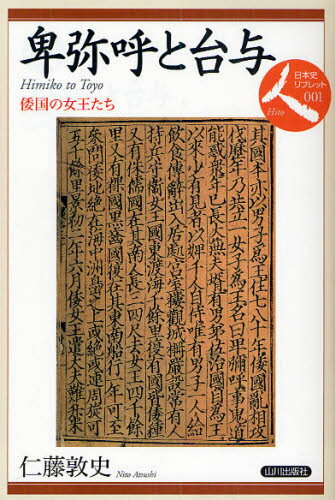 卑弥呼と台与
Himiko to Toyo
倭国の女王たち
日本史
リブレット
001
人
Hito
其國本亦以男子為王住七八十年倭國亂相攻
伐歷年乃共立一女子為王名曰卑彌呼事鬼道
能惑衆年已長大無夫壻有男弟佐治國自為王
以來少有見者以婢千人自侍唯有男子一人給
飲食傳辭出入居處宮室樓觀城柵嚴設常有人
持兵守衞女王國東渡海千餘里復有國皆倭種
又有侏儒國在其南人長三四尺去女王四千餘
里又有裸國黑齒國復在其東南船行一年可至
參問倭地絕在海中洲㠀之上或絕或連周旋可
五千餘里景初二年六月倭女王遣大夫難升米
仁藤敦史
Nito Atsushi
山川出版社